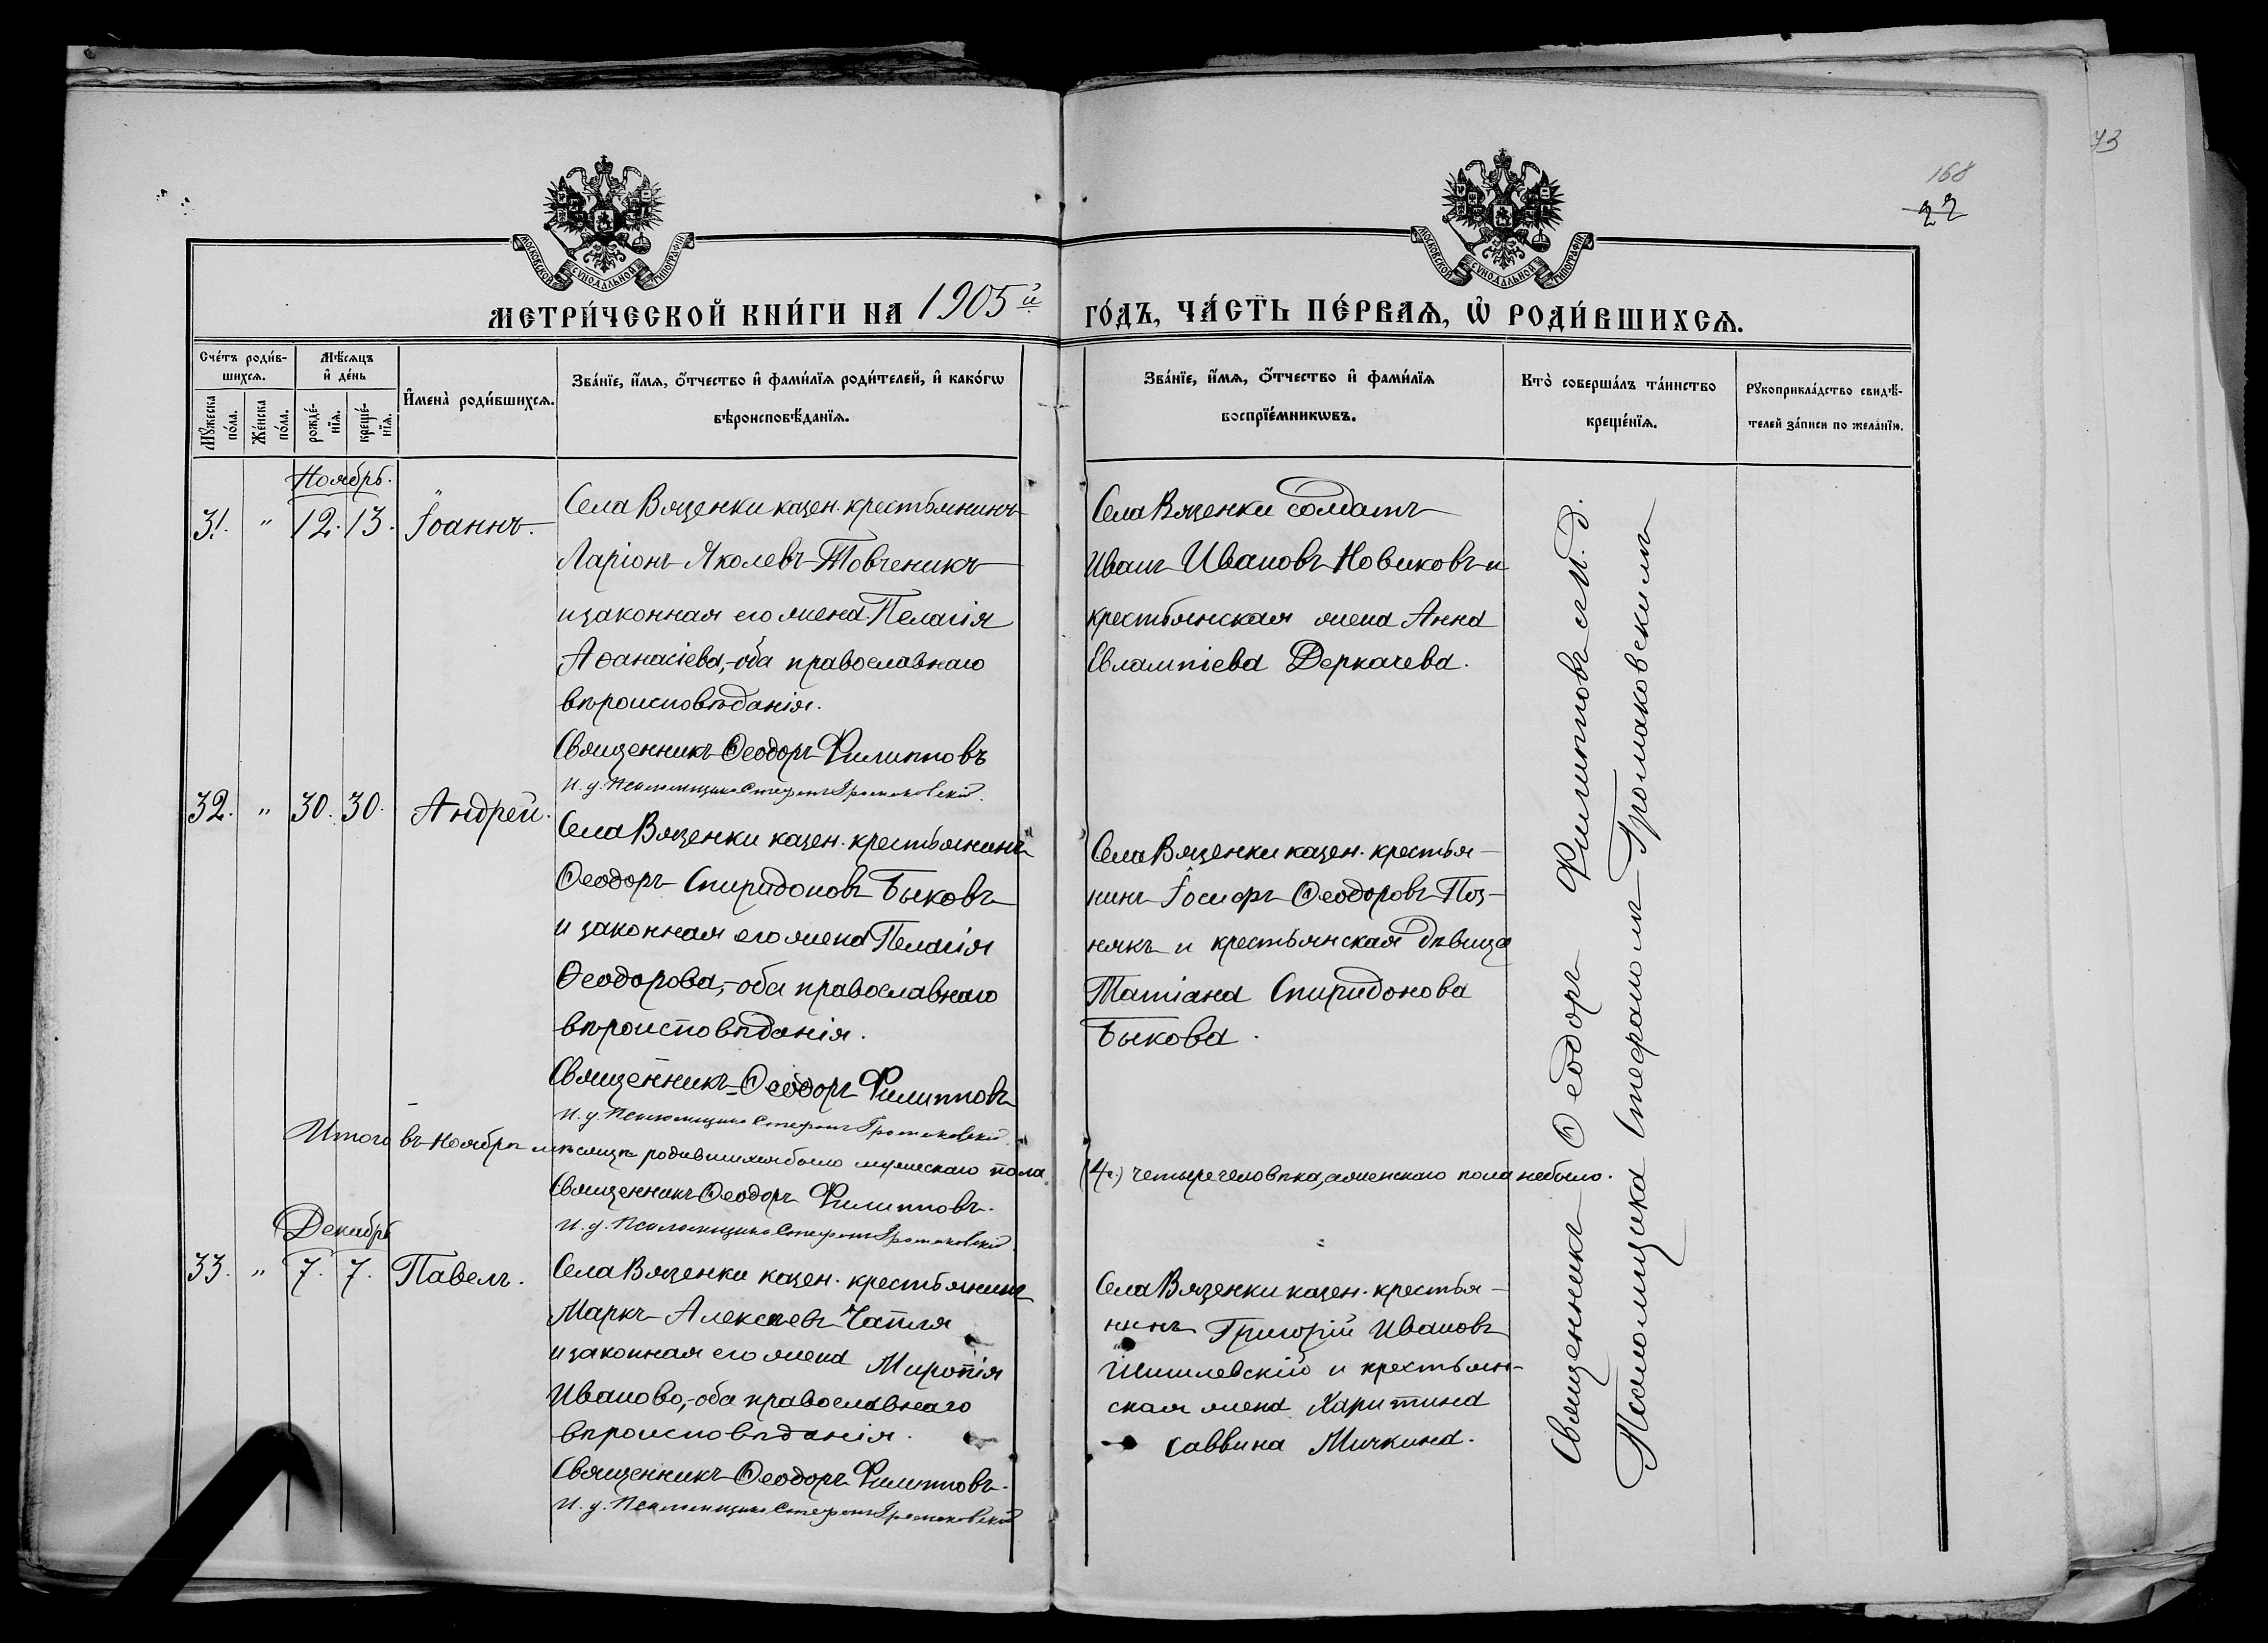 73
168
22
МОСКОВСКОЙ СѴНОДАЛЬНОЙ ТИПОГРАФІИ
МОСКОВСКОЙ СѴНОДАЛЬНОЙ ТИПОГРАФІИ
МЕТРИ́ЧЕСКОЙ КНИ́ГИ НА 1905й
ГО́ДЪ, ЧА́СТЬ ПЕ́РВАѦ, Ѽ РОДИ́ВШИХСѦ.
Сче́тъ роди́в-
шихсѧ.
Мѣ́сѧцъ
и҆ де́нь
Мꙋ́жеска
по́ла.
Же́нска
по́ла.
рожде́-
нїѧ.
креще́-
нїѧ.
И҆мена̀ роди́вшихсѧ.
Зва́нїе, и҆́мѧ, ѻ҆́тчество и҆ фами́лїѧ роди́телей, и҆ како́гѡ
вѣроисповѣ́данїѧ.
Зва́нїе, и҆́мѧ, ѻ҆́тчество и҆ фами́лїѧ
воспрїе́мникѡвъ.
Кто̀ соверша́лъ та́инство
креще́нїѧ.
Рꙋкоприкла́дство свидѣ́-
телей за́писи по жела́нїю.
Ноябрь.
31. " 12. 13. Іоаннъ.
Села Вязенки казен. крестьянинъ
Ларіонъ Яколевъ Товченикъ
и законная его жена Пелагія
Аѳанасіева,-оба православнаго
вѣроисповѣданія.
Священникъ Ѳеодоръ Филипповъ
И. д. Псаломщика Стефанъ Громаковскій.
Села Вязенки солдатъ
Иванъ Ивановъ Новиковъ и
крестьянская жена Анна
Евлампіева Деркачева.
32. " 30. 30. Андрей.
Села Вязенки казен. крестьянинъ
Ѳеодоръ Спиридоновъ Быковъ
и законная его жена Пелагія
Ѳеодорова,-оба православнаго
вѣроисповѣданія.
Священникъ Ѳеодоръ Филипповъ
И. д. Псаломщика Стефанъ Громаковскій.
Села Вязенки казен. крестья-
нинъ Іосифъ Ѳеодоровъ Поз-
някъ и крестьянская дѣвица
Татіана Спиридонова
Быкова.
Итого въ Ноябрѣ мѣсяцѣ родившихся было мужескаго пола
(4.) четыре человѣка, а женскаго пола не было.
Священникъ Ѳеодоръ Филипповъ.
И. д. Псаломщика Стефанъ Громаковскій.
Декабрь
33. " 7. 7. Павелъ.
Села Вязенки казен. крестьянинъ
Маркъ Алексѣевъ Чапля
и законная его жена Миропія
Иванова,-оба православнаго
вѣроисповѣданія.
Священникъ Ѳеодоръ Филипповъ.
И. д. Псаломщика Стефанъ Громаковскій
Села Вязенки казен. крестья-
нинъ Григорій Ивановъ
Шишлевскій и крестьян-
ская жена Харитина
Саввина Мичкина.
Священникъ Ѳеодоръ Филипповъ съ И. д.
Псаломщика Стефаномъ Громаковскимъ